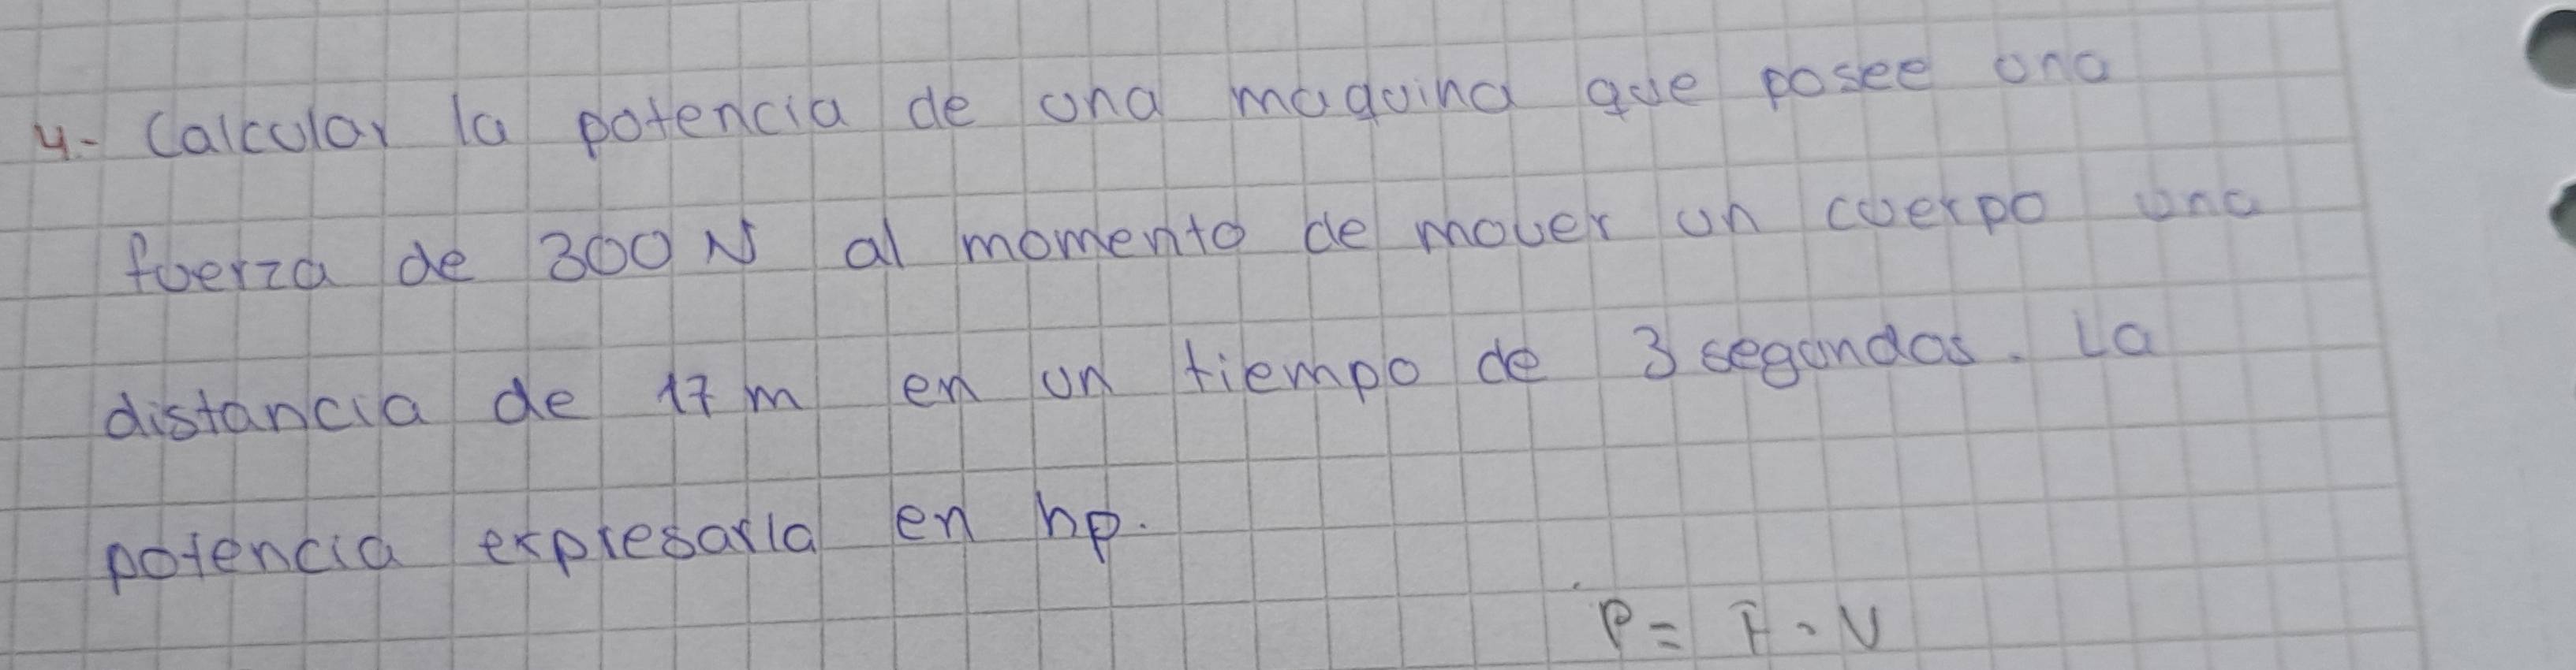 4.- Calcular la potencia de una maquina que posee una
fuerza de 300 N al momento de mover un cuerpo una
distancia de 17 m en un tiempo de 3 segundos. La
potencia expresarla en hp.
P = F . V